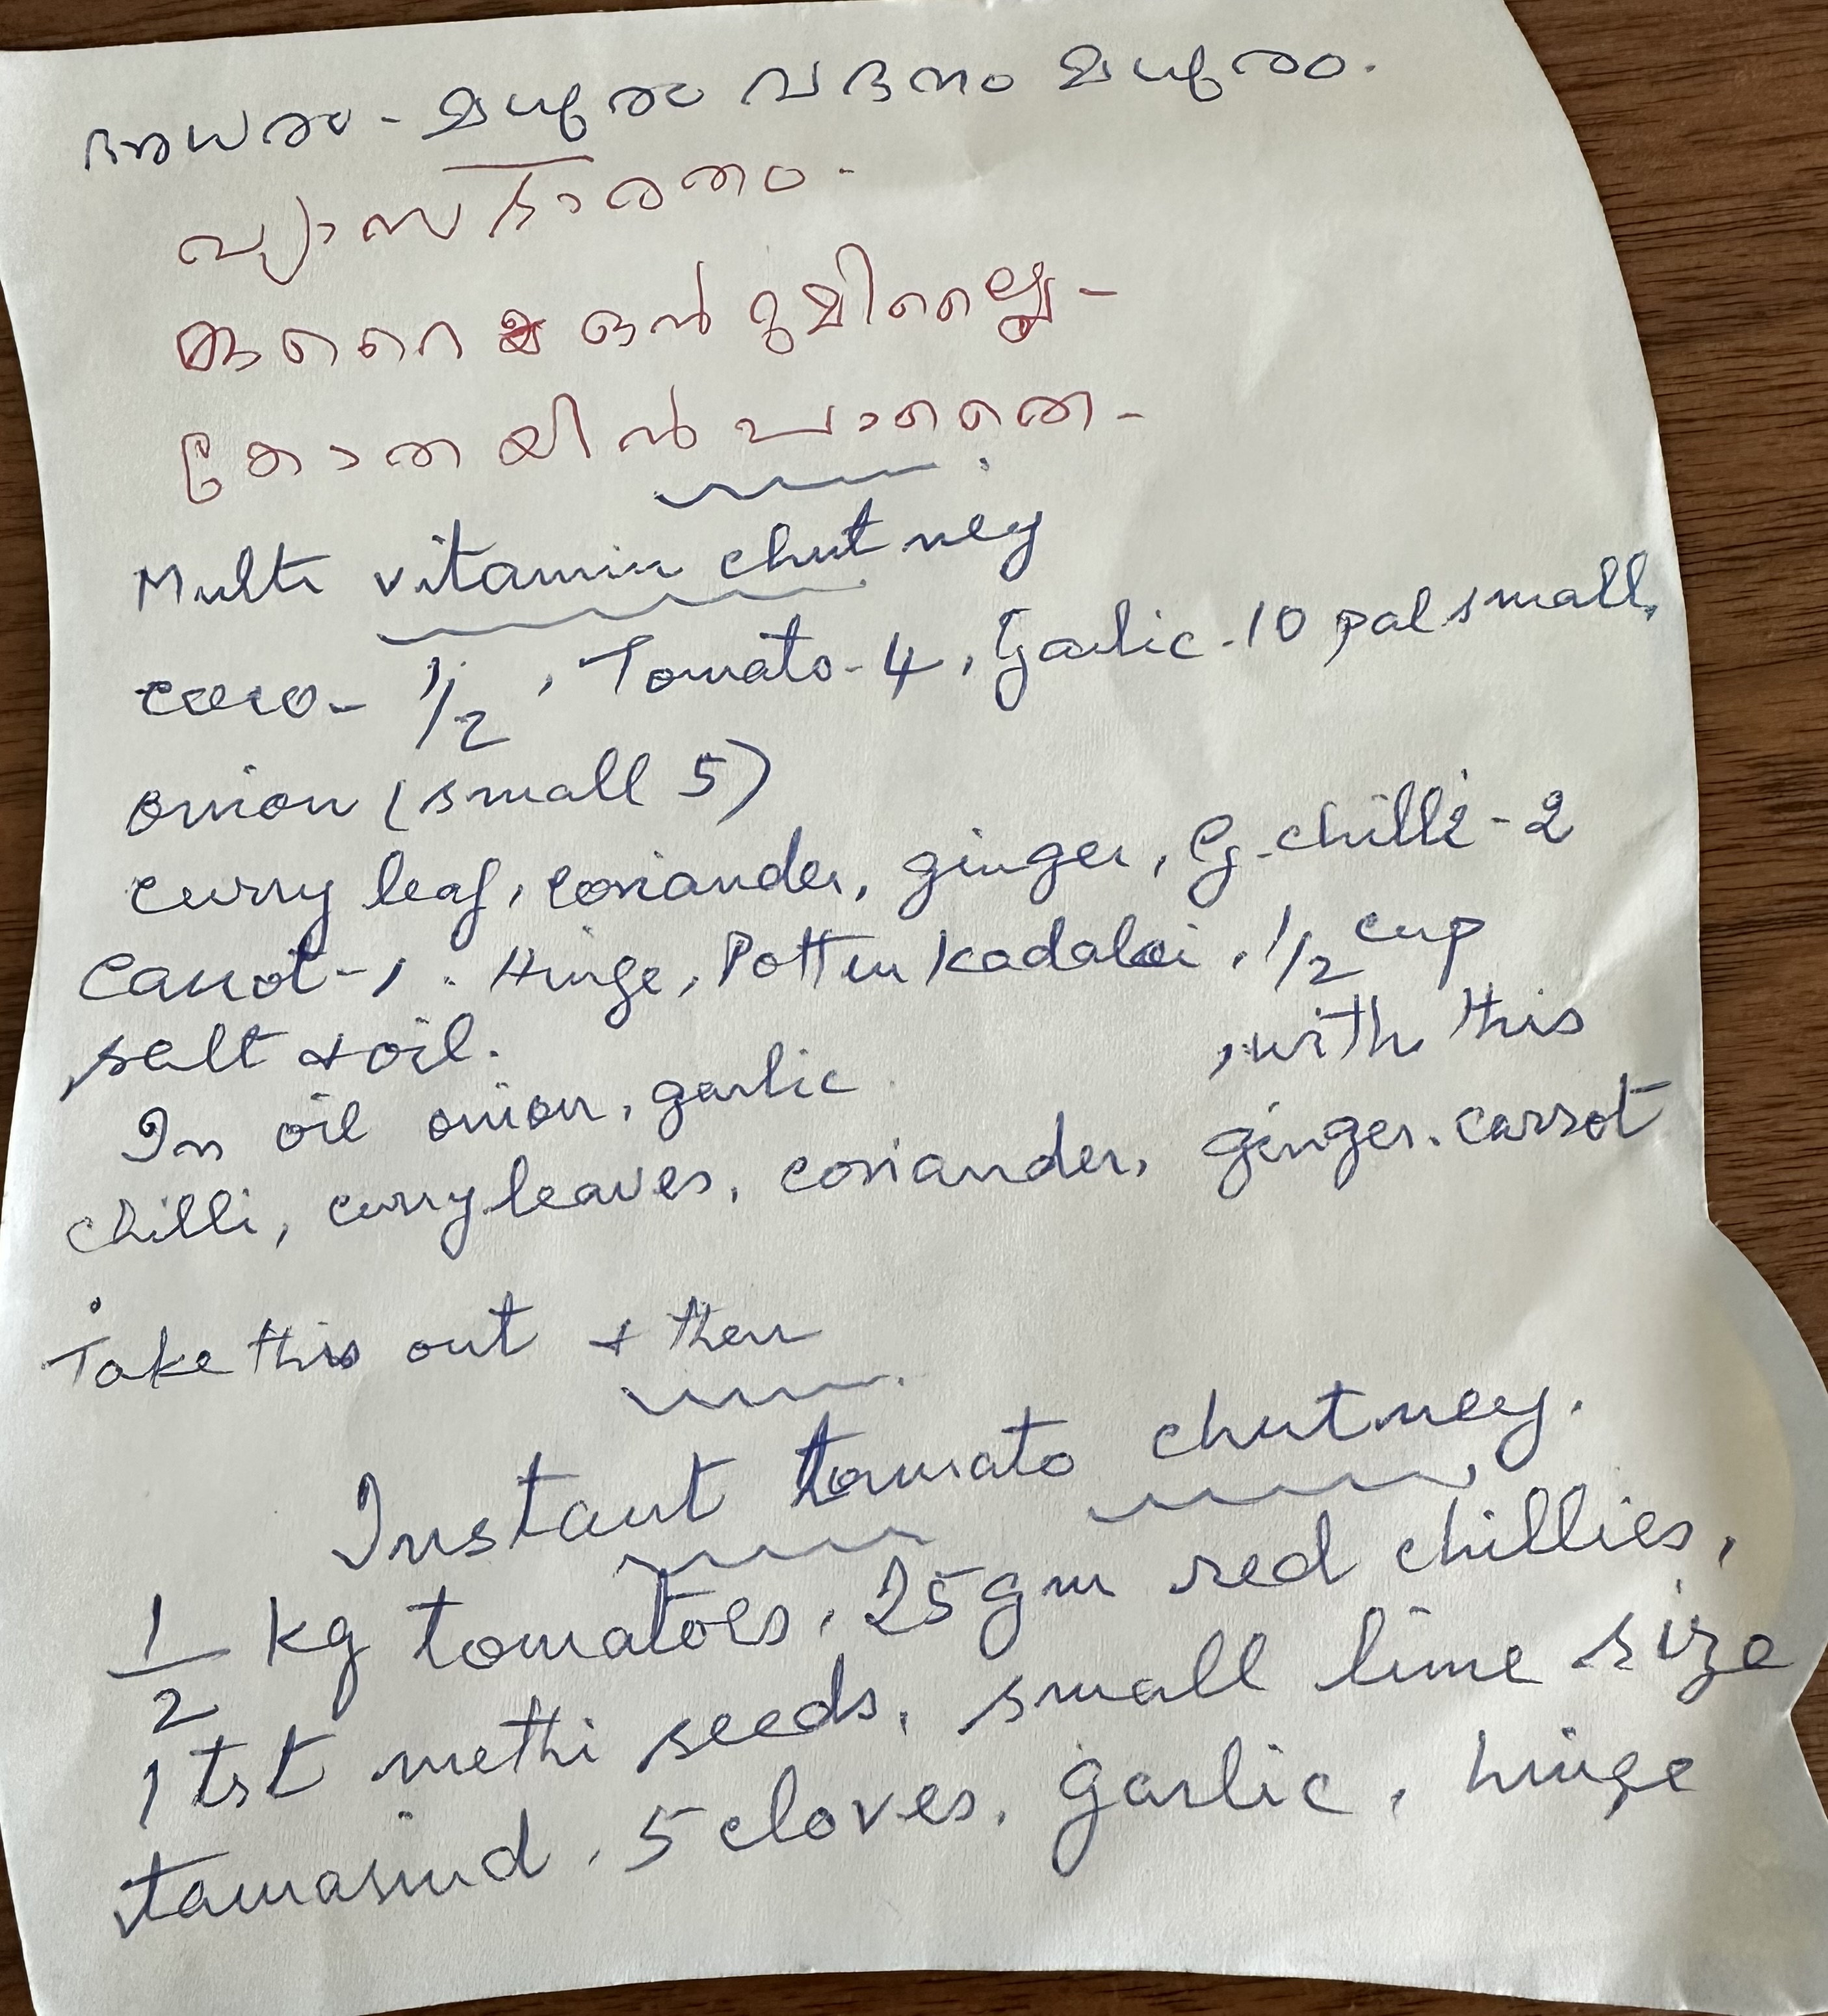 അധരം - മധുരം വദനം മധുരം.
വ്യാസ ഭാരതം.
കറൈ ഒൻറുമില്ലൈ -
കോതയിൻ പാതൈ -
Multi vitamin chutney
coco - 1/2, Tomato - 4, Garlic - 10 pal small,
onion (small 5)
curry leaf, coriander, ginger, G. chilli - 2
Carrot - 1. Hinge, Pottu kadalai, 1/2 cup
salt & oil.
In oil onion, garlic , with this
chilli, curry leaves, coriander, ginger. carrot
Take this out & then
Instant tomato chutney.
1/2 kg tomatoes, 25 gm red chillies,
1 tst methi seeds, small lime size
tamarind, 5 cloves, garlic, hinge